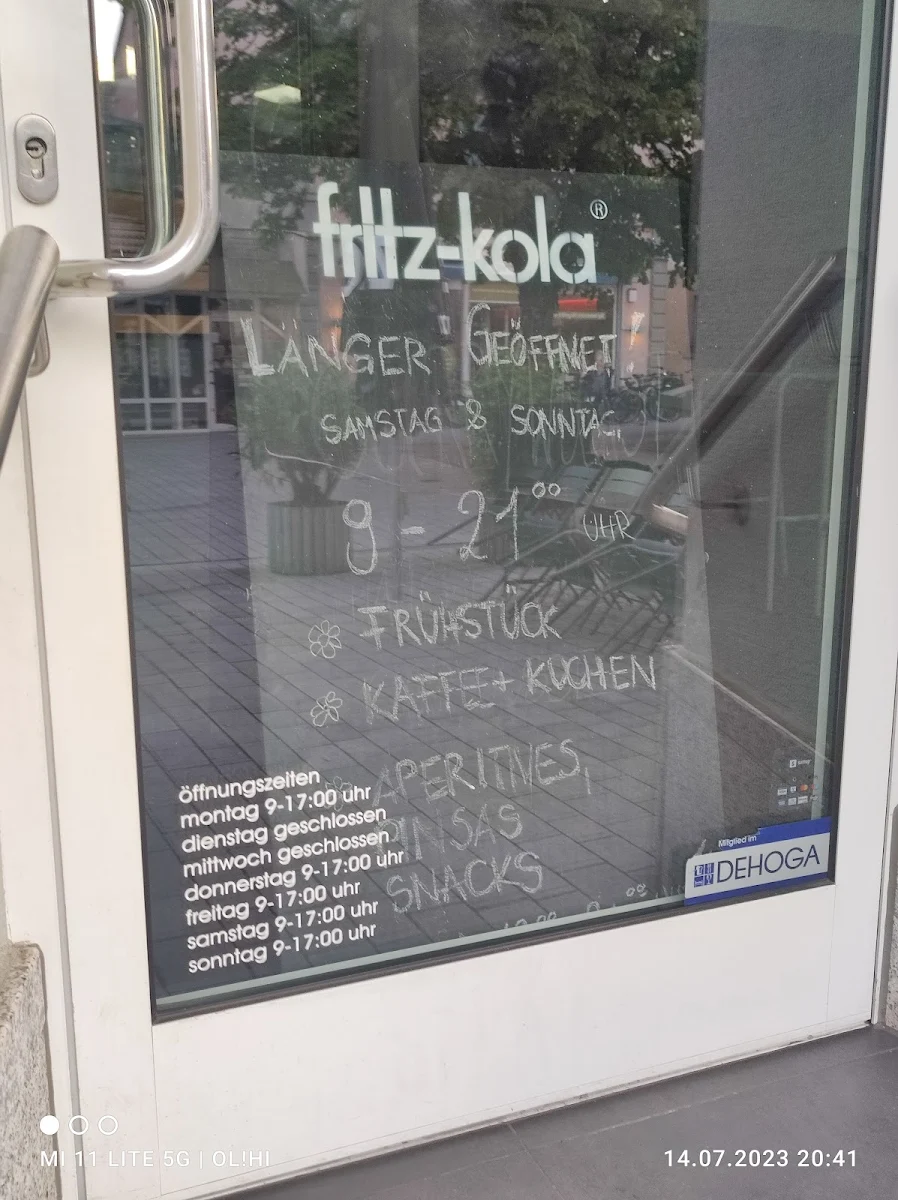 fritz-kola®
LÄNGER GEÖFFNET!
SAMSTAG & SONNTAG
9 - 21⁰⁰ UHR
FRÜHSTÜCK
KAFFEE + KUCHEN
APERITIVES,
PINSAS
SNACKS
öffnungszeiten
montag 9-17:00 uhr
dienstag geschlossen
mittwoch geschlossen
donnerstag 9-17:00 uhr
freitag 9-17:00 uhr
samstag 9-17:00 uhr
sonntag 9-17:00 uhr
Mitglied im
DEHOGA
MI 11 LITE 5G | OL!HI
14.07.2023 20:41